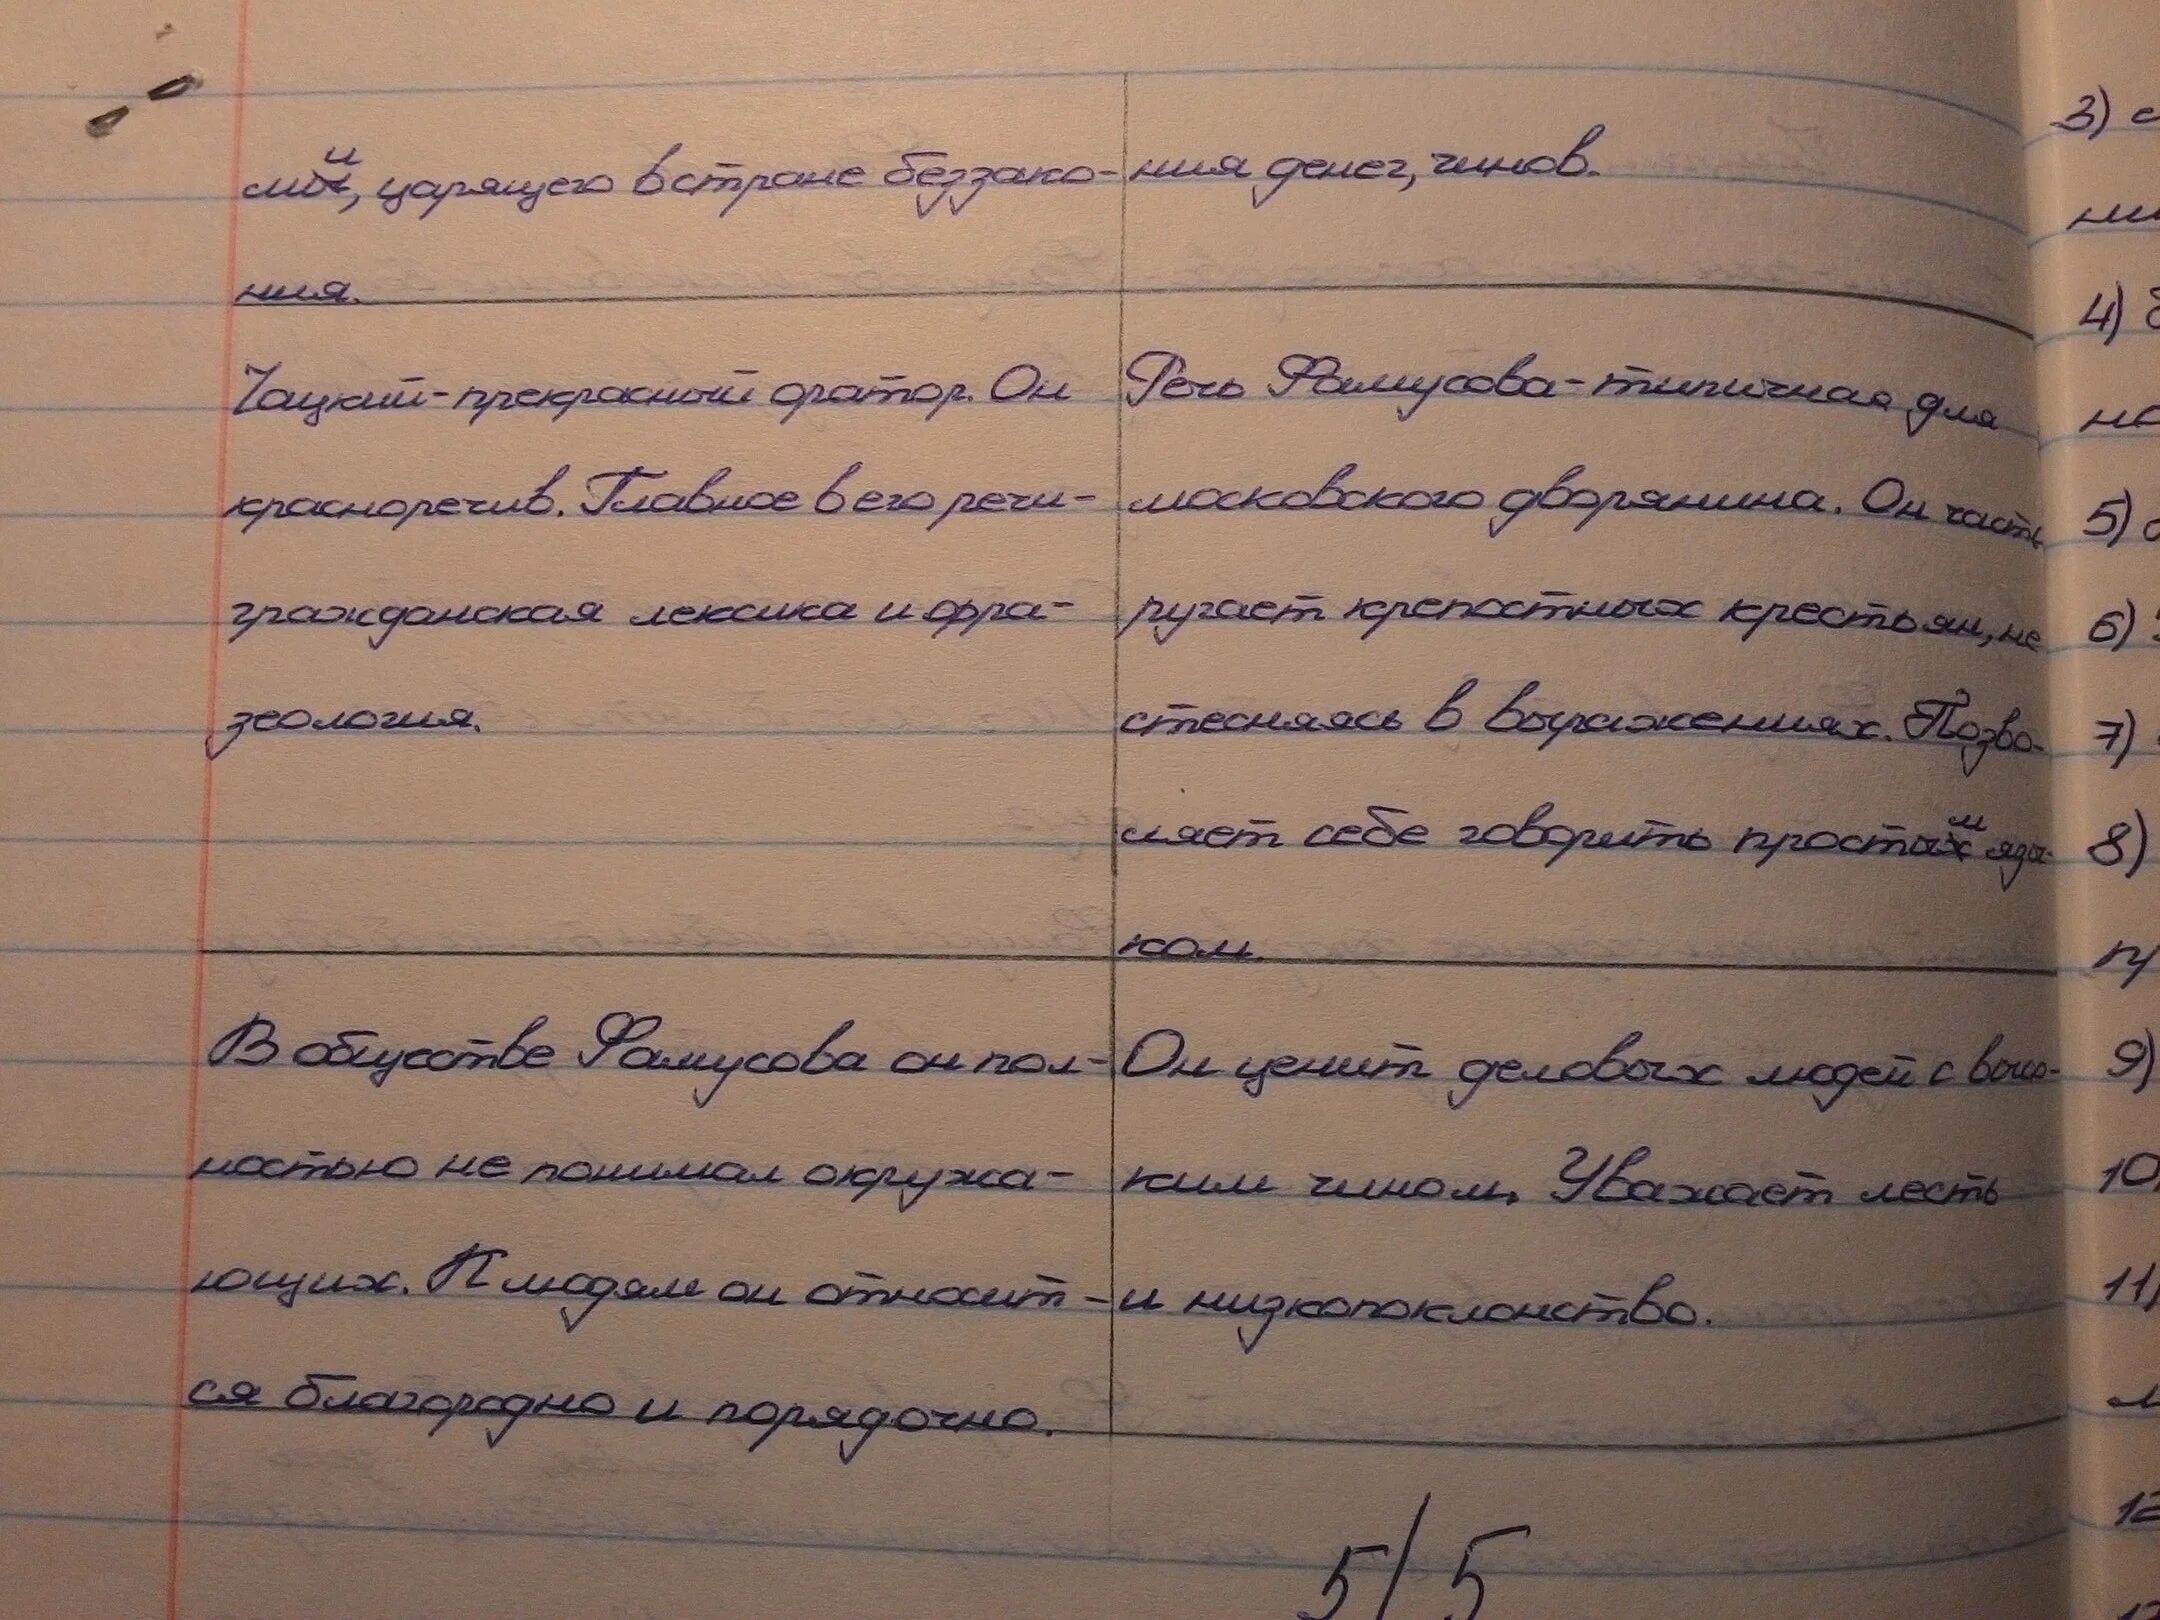 ми, царящего в стране беззако-
ния.
ния денег, чинов.
Чацкий-прекрасный оратор. Он
красноречив. Главное в его речи-
гражданская лексика и фра-
зеология.
Речь Фамусова-типичная для
московского дворянина. Он часть
ругает крепостных крестьян, не
стесняясь в выражениях. Позво-
ляет себе говорить простым язы-
ком.
В обществе Фамусова он пол-
ностью не понимал окружа-
ющих. К людям он относит-
ся благородно и порядочно.
Он ценит деловых людей с высо-
ким чином. Уважает лесть
и низкопоклонство.
5/5
3) с
ни
4) б
на
5)
6)
7)
8)
пр
9)
10
11)
м
12